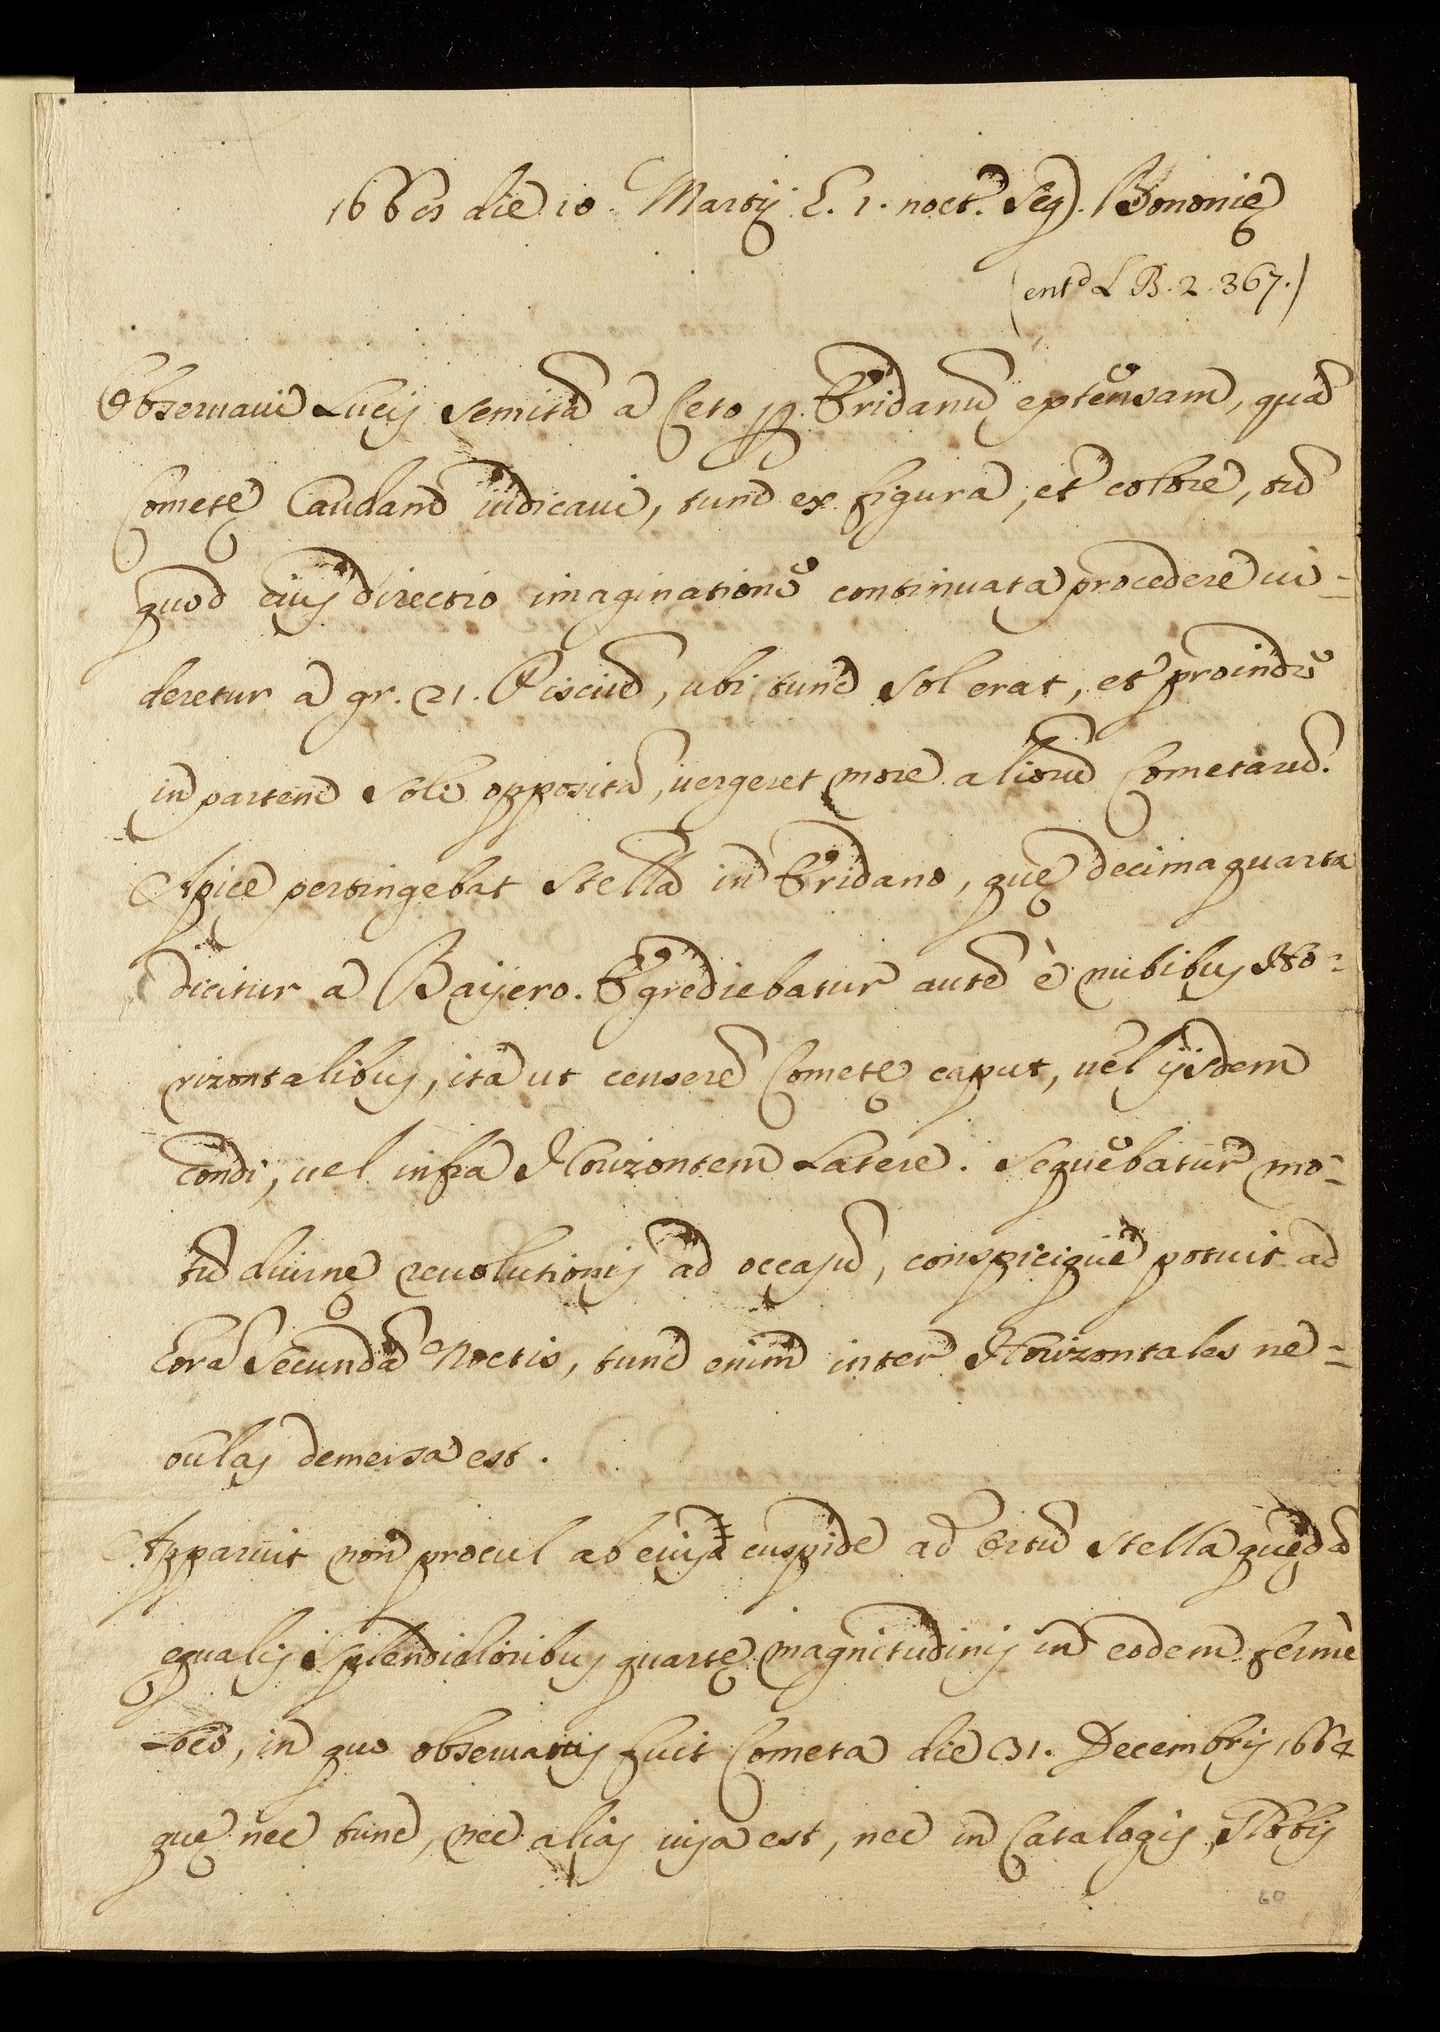 1668 die 10. Martij h. 1. noct. seq. Bononię
(entd L B. 2. 367.)
Obseruaui Lucis semitā a Ceto p. Eridanū extensam, quā
Cometę Caudam iudicaui, tum ex figura, et colore, tū
quod eius directio imaginatione continuata procedere ui-
deretur a gr. 21. Pisciū, ubi tunc Sol erat, et proinde
in partem Soli oppositā, uergeret more aliorū Cometarū.
Apice pertingebat stellā in Eridano, quę decimaquarta
dicitur a Baijero. Egrediebatur autē è nubibus Ho-
rizontalibus, ita ut censerē Cometę caput, uel ijsdem
condi, uel infra Horizontem Latere. Sequebatur mo-
tū diurnę reuolutionis ad occasū, conspicique potuit ad
horā Secundā Noctis, tunc enim inter Horizontales ne-
bulas demersa est.
Apparuit non procul ab eius cuspide ad Ortū stella quędā
ęqualis splendidioribus quartę magnitudinis in eodem fermè
Loco, in quo obseruatus fuit Cometa die 31. Decembris 1664
quę nec tunc, nec alias uisa est, nec in Catalogis, Globis
60